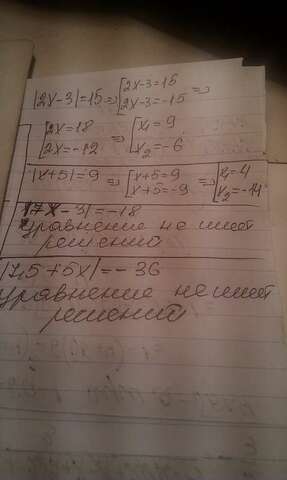 |2x-3|=15 ⇒ [2x-3=15 [2x-3=-15 ⇒
[2x=18 [2x=-12 ⇒ [x₁=9 [x₂=-6
|x+5|=9 ⇒ [x+5=9 [x+5=-9 ⇒ [x₁=4 [x₂=-14
|7x-3|=-18
уравнение не имеет
решений
|7,5+5x|=-36
уравнение не имеет
решений